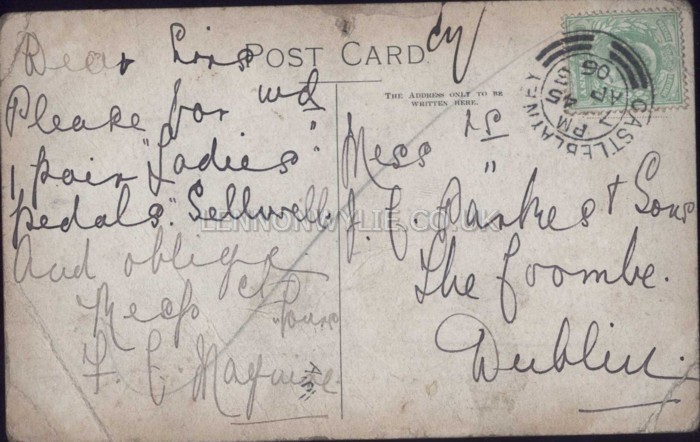 POST CARD
THE ADDRESS ONLY TO BE
WRITTEN HERE.
Dear Sirs
Please for wd
1 pair "Ladies"
pedals. "Sellwell.
And oblige
Resp Yours
F. E. Maguire
Mess rs
J. E. Parkes & Sons
The Coombe.
Dublin.
CASTLEBLAYNEY
7 PM
AP 4
06
LENNONWYLIE.CO.UK